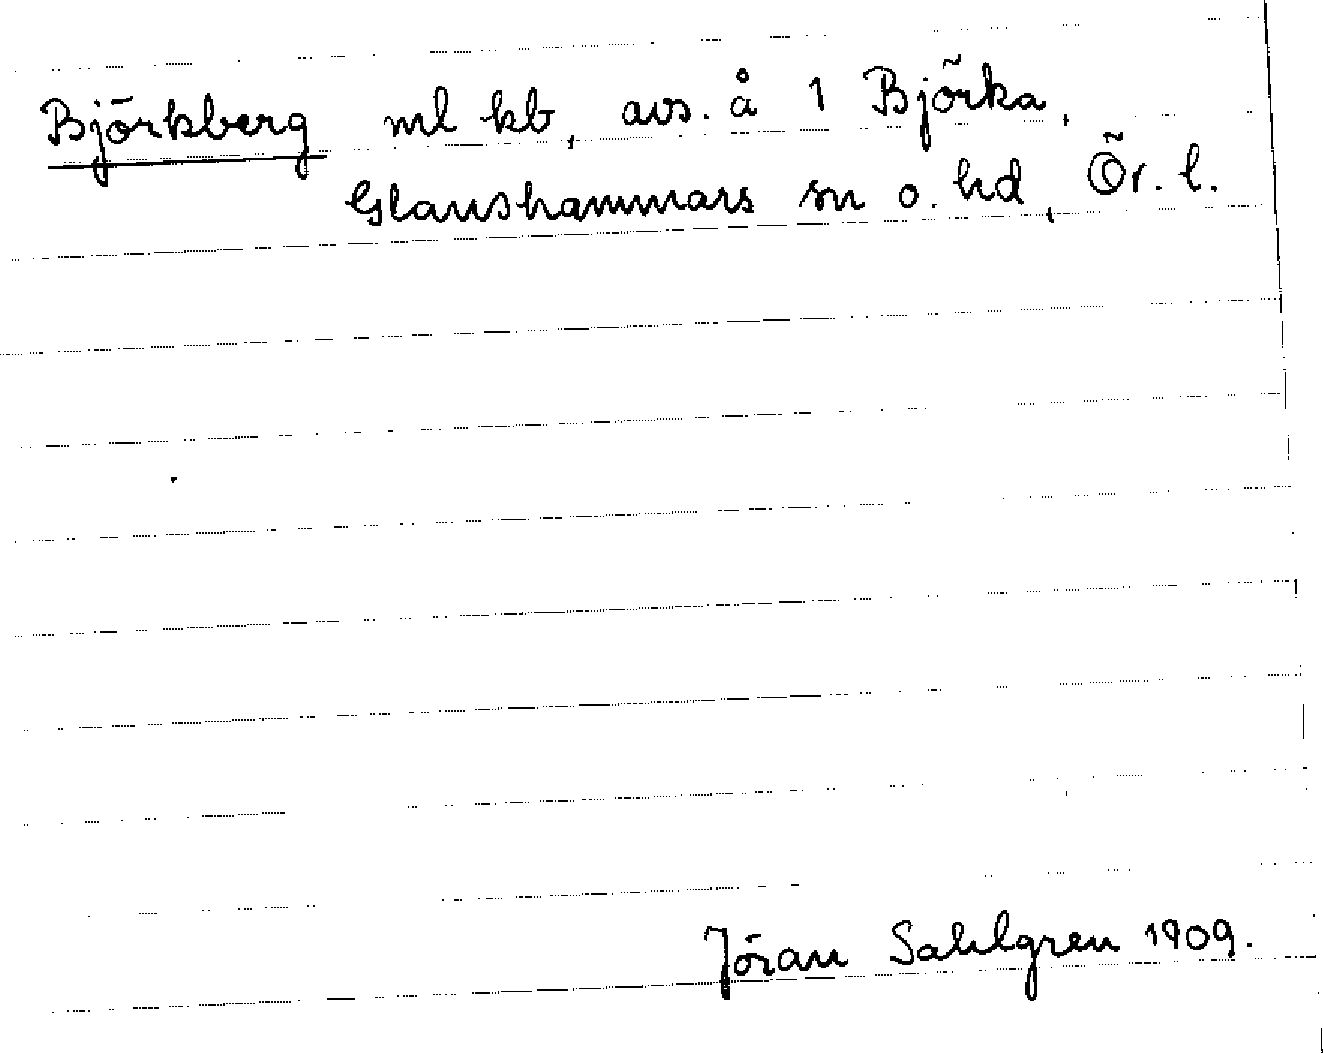 Björkberg ml kb, avs. å 1 Björka,
Glanshammars sn o. hd, Ör. l.
Jöran Sahlgren 1909.